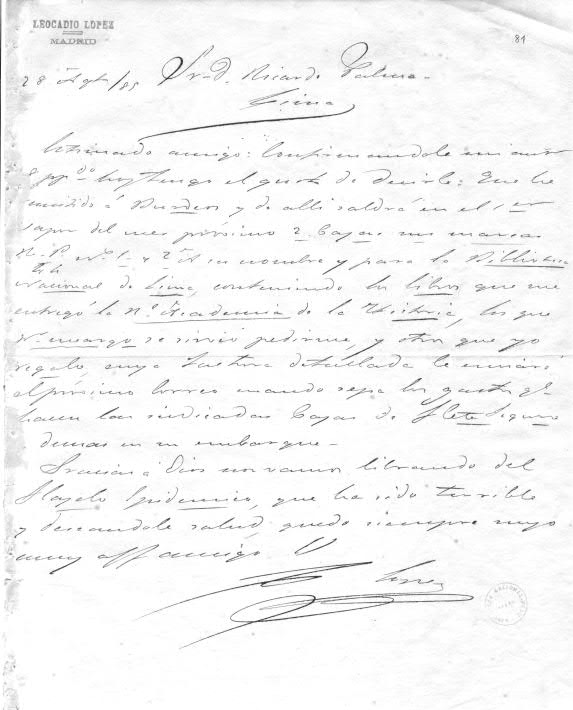 LEOCADIO LOPEZ
MADRID
81
28 Agto/85 Sr. D. Ricardo Palma
Lima
Estimado amigo: Confirmandole mi
8 ppdo hoy tengo el gusto de decirle: Que he
remitido á Burdeos y de alli saldrá en el 1er
vapor del mes próximo 2 Cajas mis marcas
R. P. nos 1 y 2 á su nombre y para la Biblioteca
Nacional de Lima, conteniendo los libros que me
entregó la Rl Academia de la Historia, los que
V. me encargó se sirvió pedirme, y otros que yo
regalo, cuya factura detallada le enviaré
el próximo correo cuando sepa los gastos qe
hacen las indicadas Cajas de flete Seguro
demas en su embarque.
Gracias á Dios nos vamos librando del
flagelo Epidemico, que ha sido terrible
y deseandole salud, quedo siempre suyo
muy aff amigo
Lopez